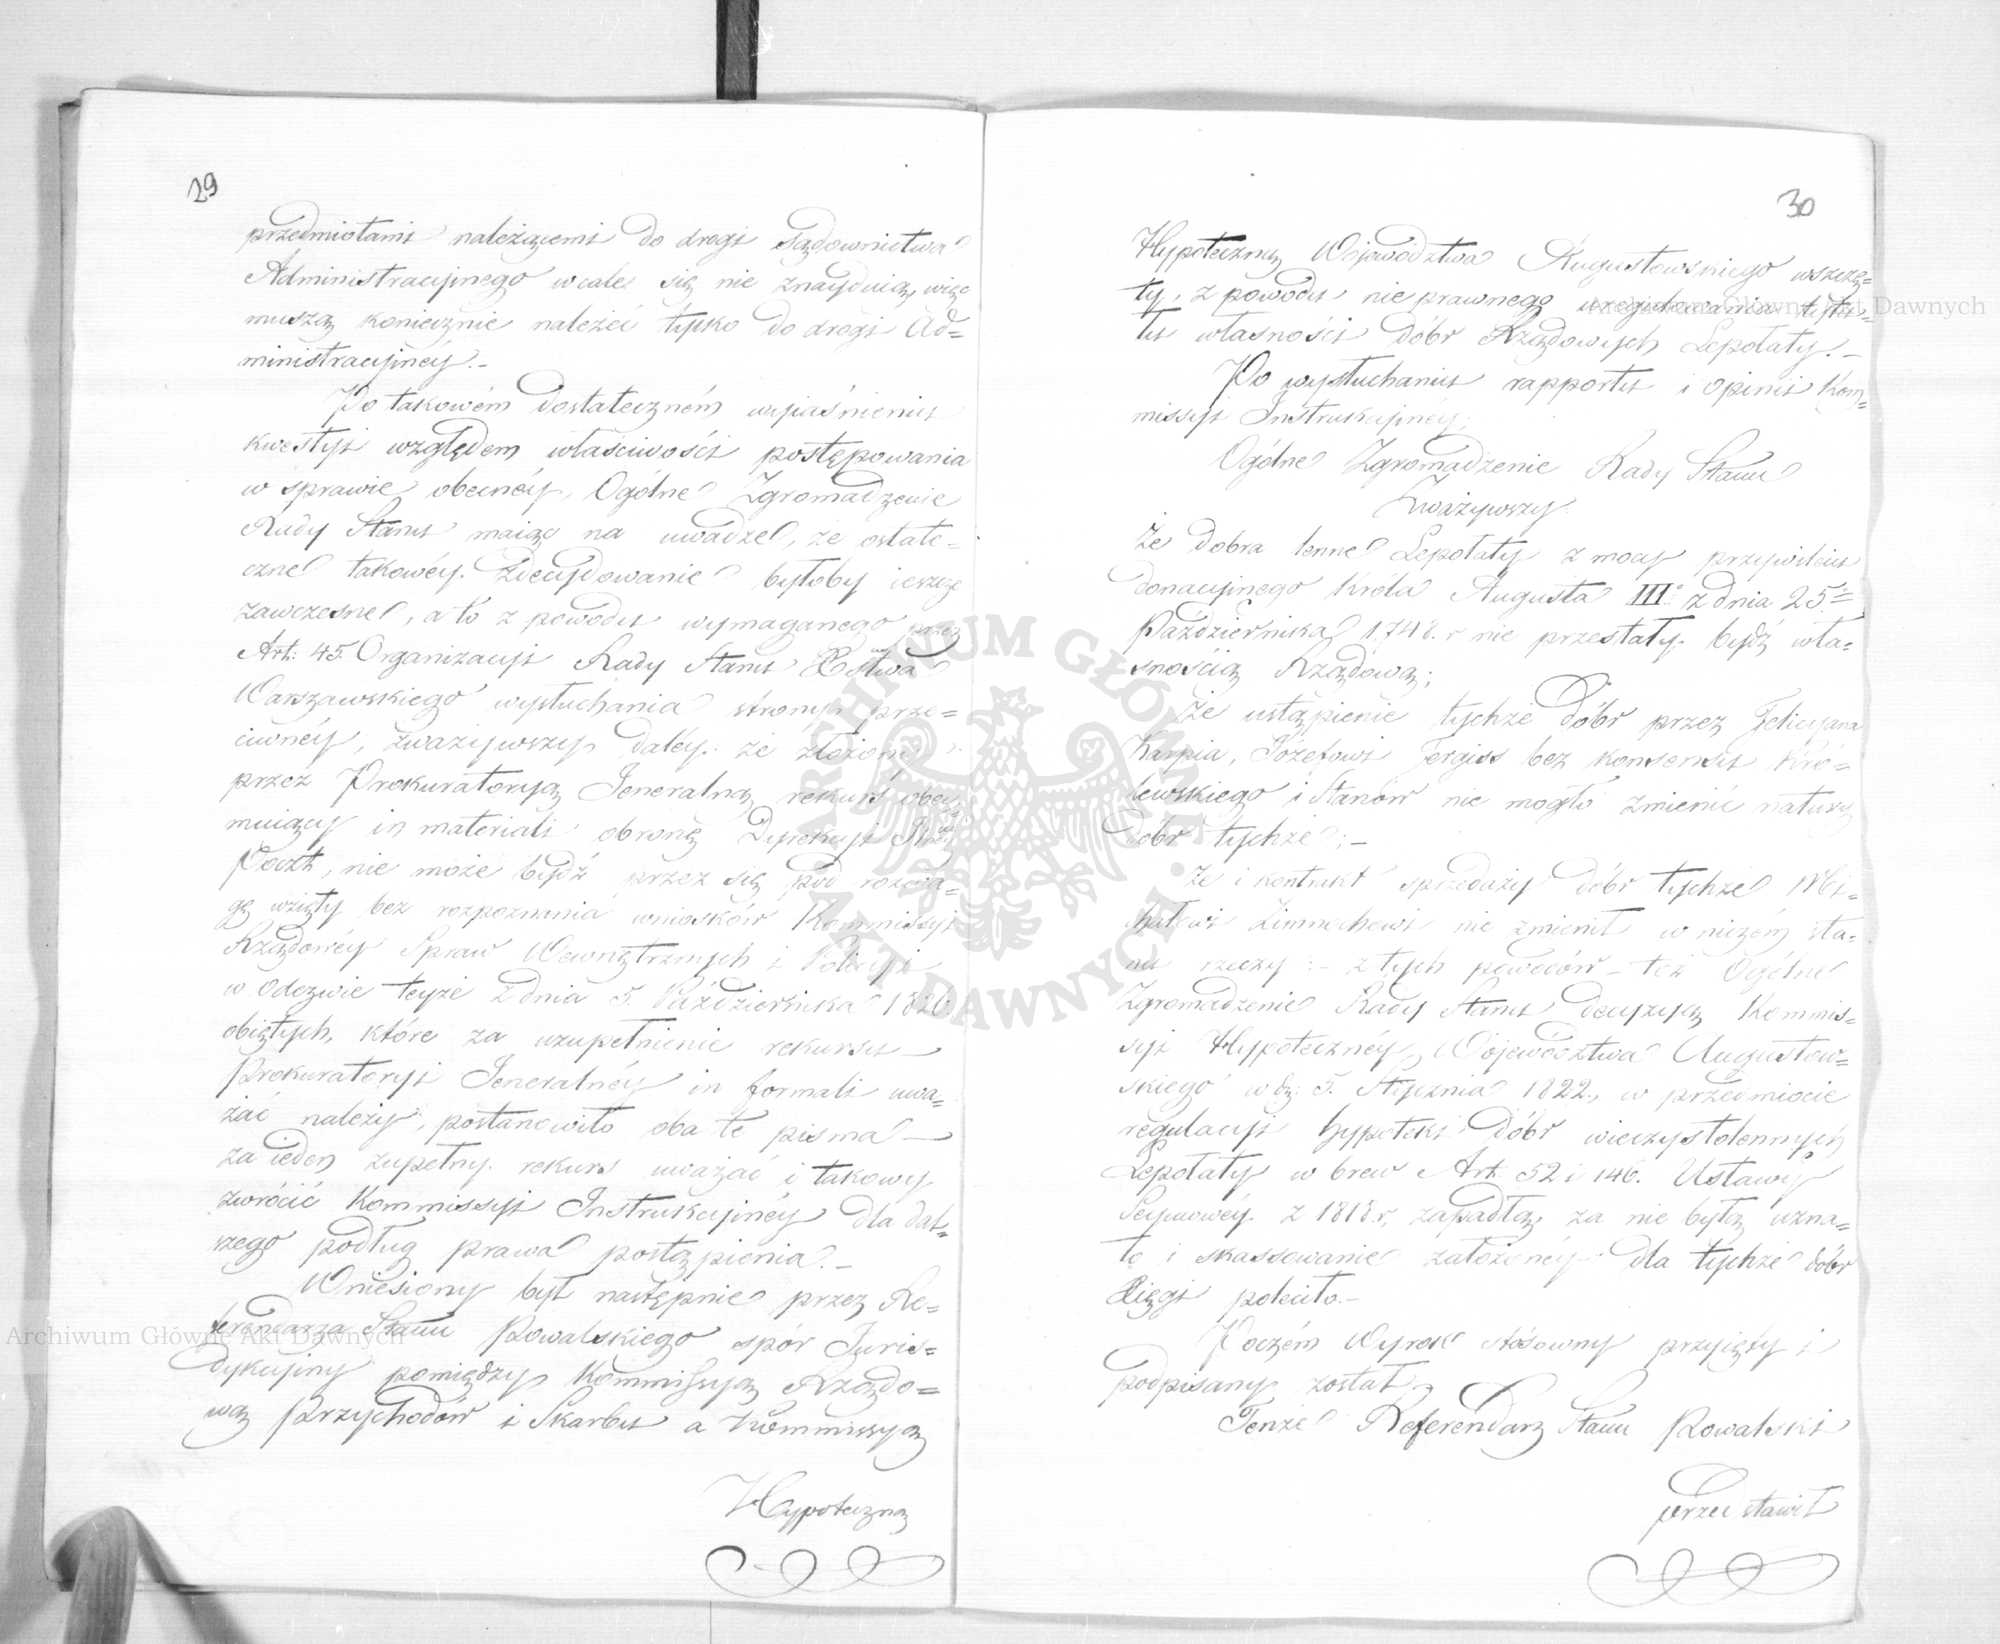 29
przedmiotami należącemi do drogi Sądownictwa
Administracyjnego wcale się nie znayduią, więc
muszą koniecznie należeć tylko do drogi Ad=
ministracyjnéy.-
Po takowém dostateczném wyiaśnieniu
kwestyi względem właściwości postępowania
w sprawie obecnéy, Ogólne Zgromadzenie
Rady Stanu maiąc na uwadze, że ostate=
czne takowéy zdecydowanie byłoby ieszcze
zawczesne, a to z powodu wymaganego przez
Art: 45. Organizacyi Rady Stanu Xstwa
Warszawskiego wysłuchania strony prze=
ciwnéy; zważywszy daléy: że złożony
przez Prokuratoryą Jeneralną rekurs obey=
muiący in materiali obronę Dyrekcyi
Poczt, nie może bydź przez się pod rozwa=
gę wzięty bez rozpoznania wniosków Kommissyi
Rządowéy Spraw Wewnętrznych i Policyi
w odezwie teyże z dnia 5. Października 1820.
obiętych, które za uzupełnienie rekursu
Prokuratoryi Jeneralnéy in formali uwa=
żać należy, postanowiło oba te pisma
za ieden zupełny rekurs uważać i takowy
zwrócić Kommissyi Instrukcyjnéy dla dal=
szego podług prawa postąpienia.-
Wniesiony był następnie przez Re=
ferendarza Stanu Kowalskiego spór Juris=
dykcyjny pomiędzy Kommissyą Rządo=
wą Przychodów i Skarbu a Kommissyą
Hypoteczną
30
Hypoteczną Województwa Augustowskiego wszczę=
ty, z powodu nieprawnego uregulowania tytu=
łu własności dóbr Rządowych Lepołaty.-
Po wysłuchaniu rapportu i opinii Kom=
missyi Instrukcyjnéy;
Ogólne Zgromadzenie Rady Stanu
Zważywszy:
Że dobra lenne Lepołaty z mocy przywileiu
donacyjnego Króla Augusta III° z dnia 25.
Października 1748. r nie przestały bydź wła=
snością Rządową;
Że ustąpienie tychże Dóbr przez Felicyana
Karpia, Józefowi Fergiss bez konsensu Kró=
lewskiego i Stanów nie mogło zmienić natury
dóbr tychże;-
Że i kontrakt sprzedaży dóbr tychże Mi=
chałowi Zimnochowi nie zmienił w niczém sta=
nu rzeczy:- z tych powodów - też Ogólne
Zgromadzenie Rady Stanu decyzyą Kommis=
syi Hypotecznéy Województwa Augustow=
skiego w d: 5. Stycznia 1822., w przedmiocie
regulacyi hypoteki dóbr wieczystolennych
Lepołaty w brew Art: 52 i 146. Ustawy
Seymowéy z 1818 r, zapadłą, za nie byłą uzna=
ło i skassowanie założonéy dla tychże dóbr
Xięgi poleciło.-
Poczém Wyrok stósowny przyięty i
podpisany został.
Tenże Referendarz Stanu Kowalski
przedstawił
Archiwum Główne Akt Dawnych
Archiwum Główne Akt Dawnych
ARCHIWUM GŁÓWNE AKT DAWNYCH